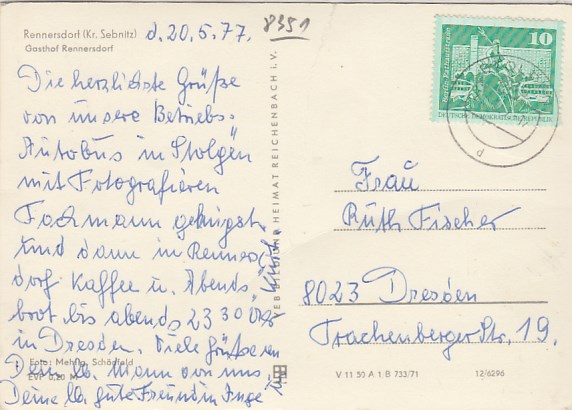 Rennersdorf (Kr. Sebnitz)
Gasthof Rennersdorf
d. 20.5.77.
8351
Die herzlichste Grüße
von unsere Betriebs-
Autobus in Stolpen
mit Fotografieren
Fachmann
und dann in Renners
dorf Kaffee u. Abends
brot bis abends 23 30 Uhr
in Dresden. Viele Grüße an
Dein lb. Mann von uns
Deine lb. gute Freundin Inge
Foto: Mehlig, Schönfeld
EVP 0,20 M
VEB BILD UND HEIMAT REICHENBACH i. V.
V 11 50 A 1 B 733/71
12/6296
10
Berlin, Rathausstraße
DEUTSCHE DEMOKRATISCHE REPUBLIK
Frau
Ruth Fischer
8023 Dresden
Trachenberger Str. 19.